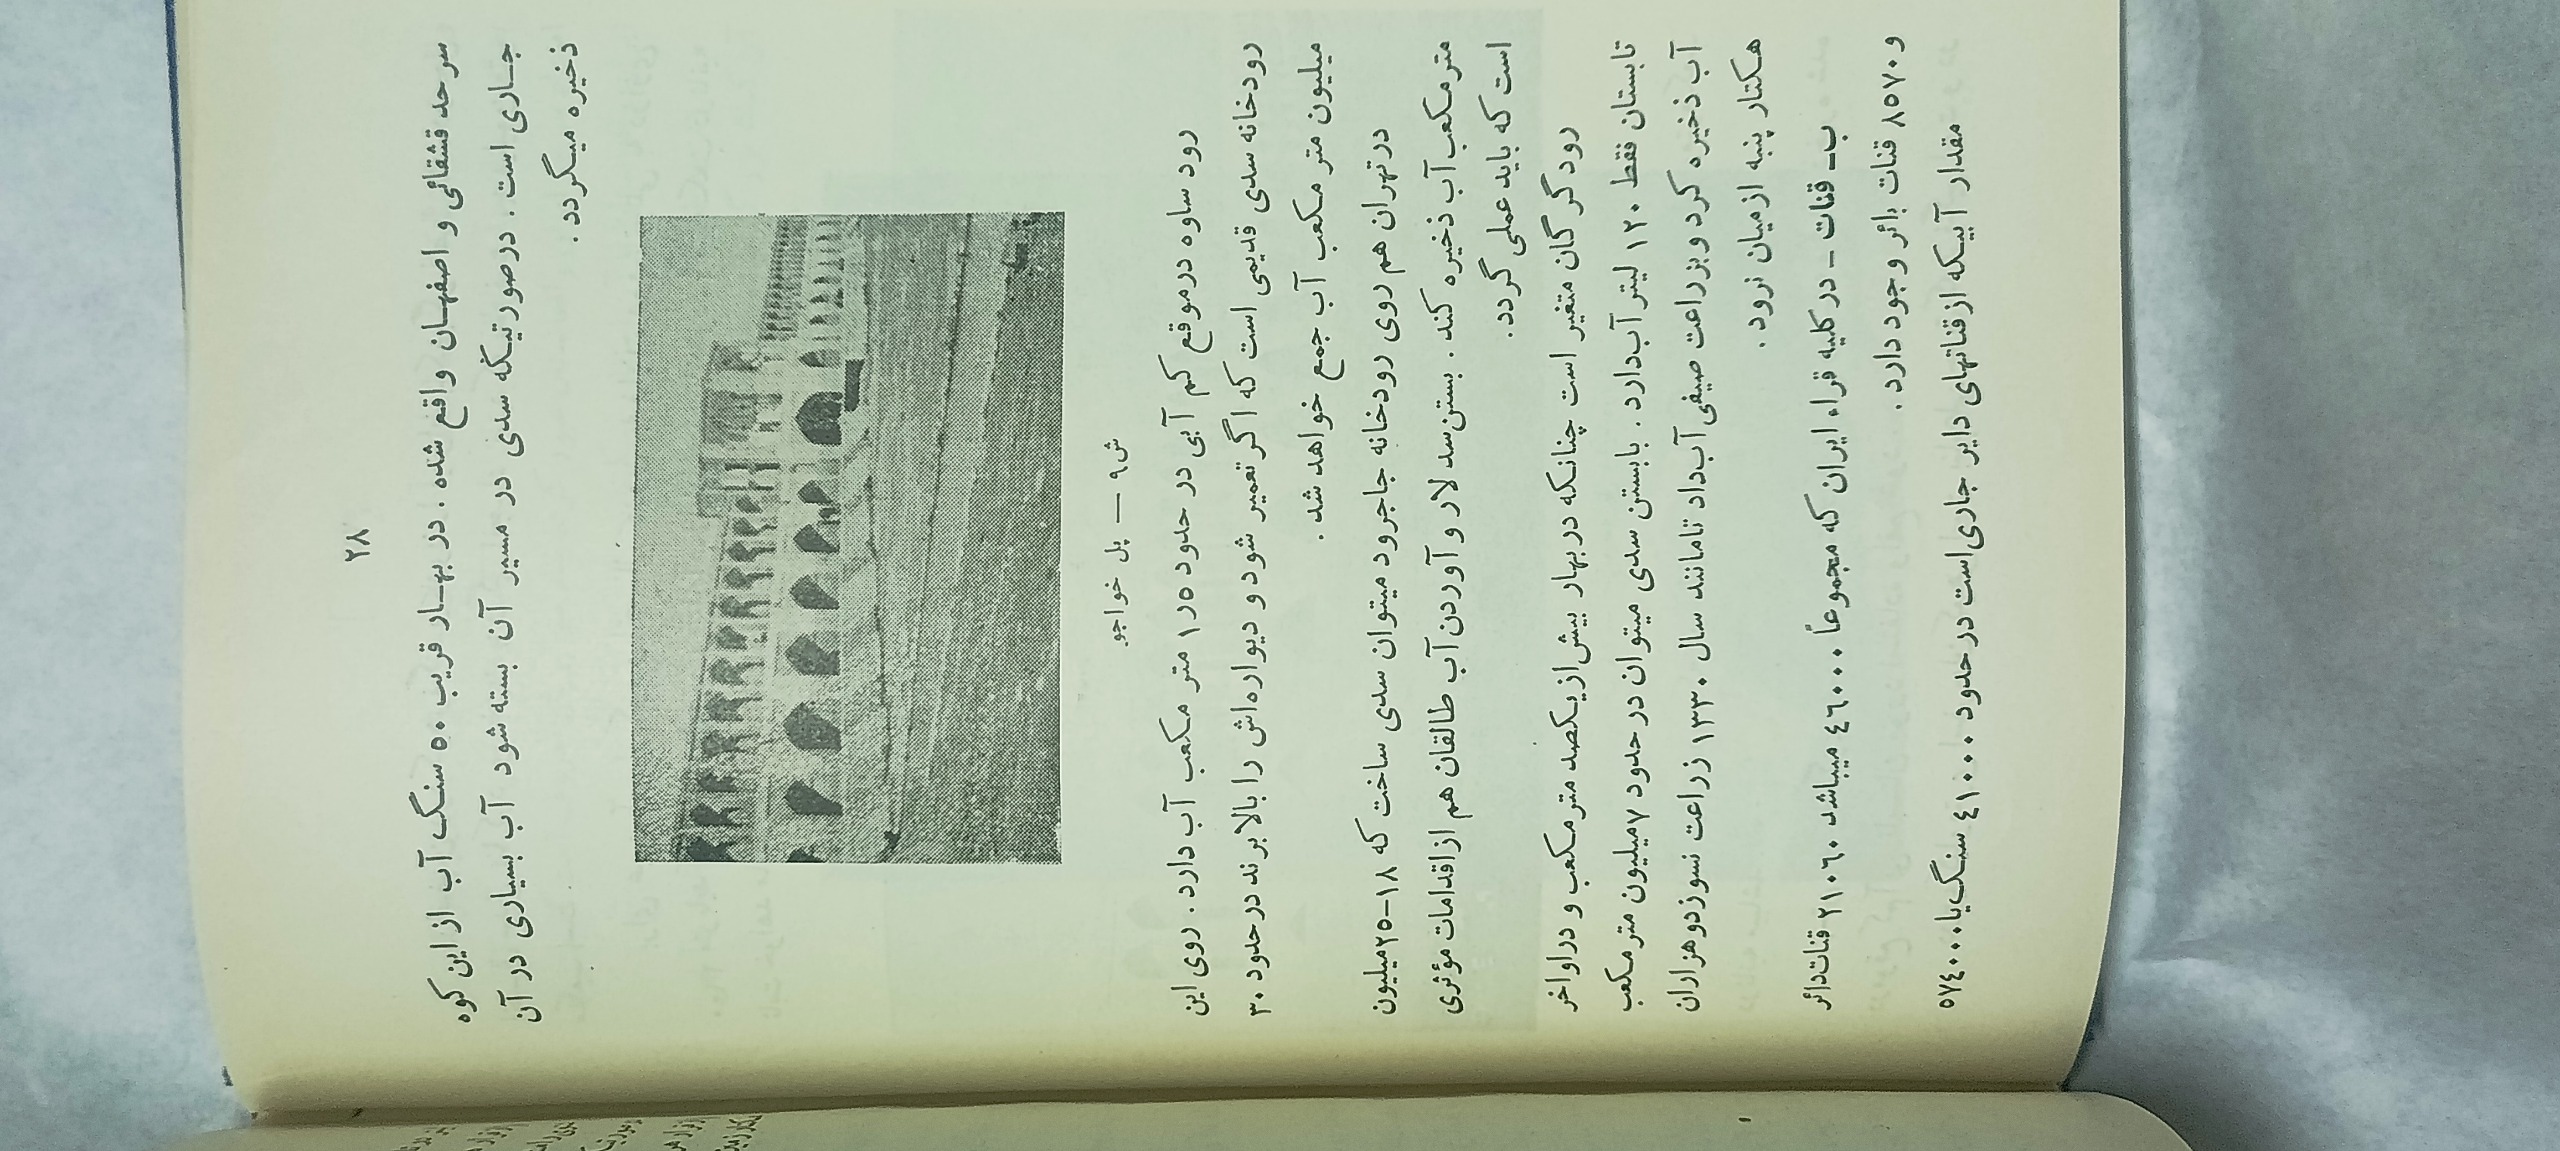 ۲۸
سرحد قشقائی و اصفهان واقع شده . در بهار قریب ۵۰ سنگ آب از این کوه
جاری است . درصورتیکه سدی در مسیر آن بسته شود آب بسیاری در آن
ذخیره میگردد .
ش ۹ — پل خواجو
رود ساوه درموقع کم آبی در حدود ۱٫۵ متر مکعب آب دارد . روی این
رودخانه سدی قدیمی است که اگر تعمیر شود و دیواره‌اش را بالا برند در حدود ۳۰
میلیون متر مکعب آب جمع خواهد شد .
در تهران هم روی رودخانه جاجرود میتوان سدی ساخت که ۱۸-۲۵ میلیون
متر مکعب آب ذخیره کند . بستن سد لار و آوردن آب طالقان هم از اقدامات مؤثری
است که باید عملی گردد .
رود گرگان متغیر است چنانکه در بهار بیش از یکصد متر مکعب و در اواخر
تابستان فقط ۱۲۰ لیتر آب دارد . با بستن سدی میتوان در حدود ۷ میلیون متر مکعب
آب ذخیره کرد و بزراعت صیفی آب داد تا مانند سال ۱۳۳۰ زراعت نسوزد و هزاران
هکتار پنبه از میان نرود .
ب- قنات - در کلیه قراء ایران که مجموعاً ۴۶۰۰۰ میباشد ۲۱۰۶۰ قنات دائر
و ۸۵۷۰ قنات بائر وجود دارد .
مقدار آبیکه از قناتهای دایر جاری است در حدود ۴۱۰۰۰ سنگ یا ۵۷۴۰۰۰